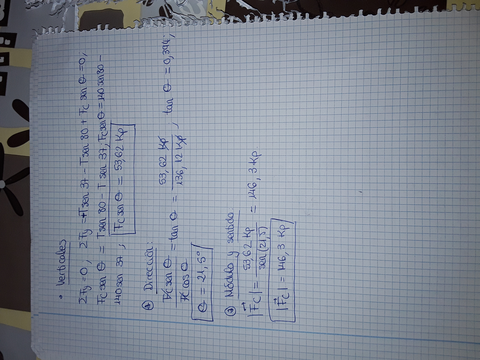 • Verticales
ΣFy = 0, ΣFy = T sen 37 - T sen 80 + Fc sen θ = 0,
Fc sen θ = T sen 80 - T sen 37, Fc sen θ = 140 sen 80 -
140 sen 37, Fc sen θ = 53,62 Kp
② Dirección
Fc sen θ / Fc cos θ = tan θ = 53,62 Kp / 136,12 Kp, tan θ = 0,394;
θ = 21,5°
③ Módulo y sentido
|Fc| = 53,62 Kp / sen (21,5) = 146,3 Kp
|Fc| = 146,3 Kp